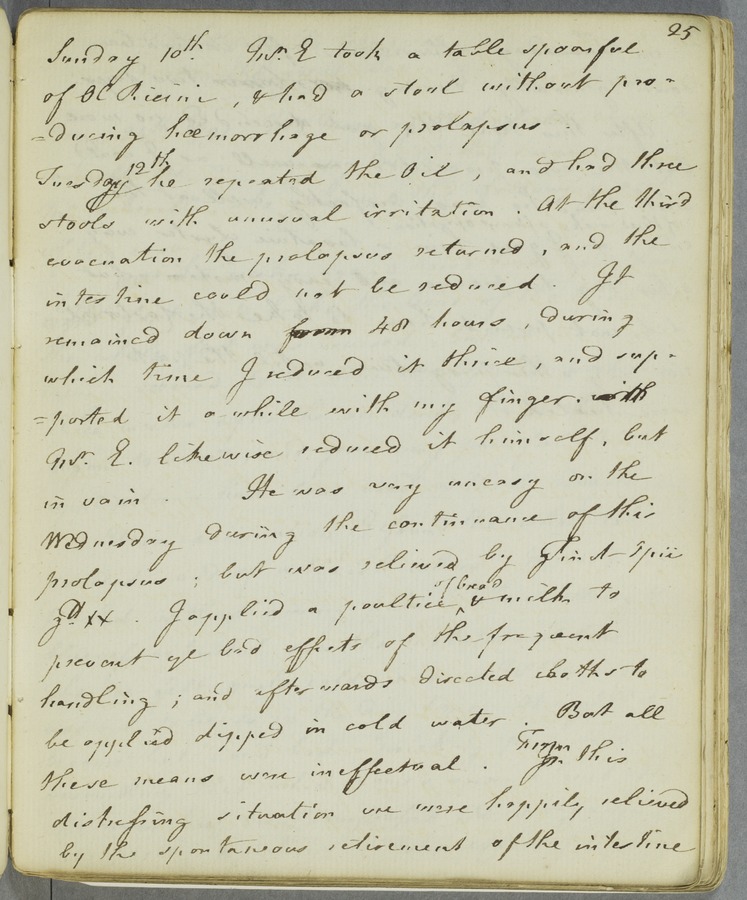 25
Sunday 10th. Mr. E took a table spoonful
of Ol Ricini, & had a stool without pro=
=ducing hæmorrhage or prolapsus.
Tuesday 12th he repeated the Oil, and had three
stools with unusual irritation. At the third
evacuation the prolapsus returned, and the
intestine could not be reduced. It
remained down 48 hours, during
which time I reduced it thrice, and sup=
=ported it a while with my finger. with
Mr. E. likewise reduced it himself, but
in vain. He was very uneasy on the
Wednesday during the continuance of this
prolapsus; but was relieved by Tinct Opii
xx. I applied a poultice of bread & milk to
prevent ye bad effects of the frequent
handling; and afterwards directed cloths to
be applied dipped in cold water. But all
these means were ineffectual. From this
distressing situation we were happily relieved
by the spontaneous retirement of the intestine